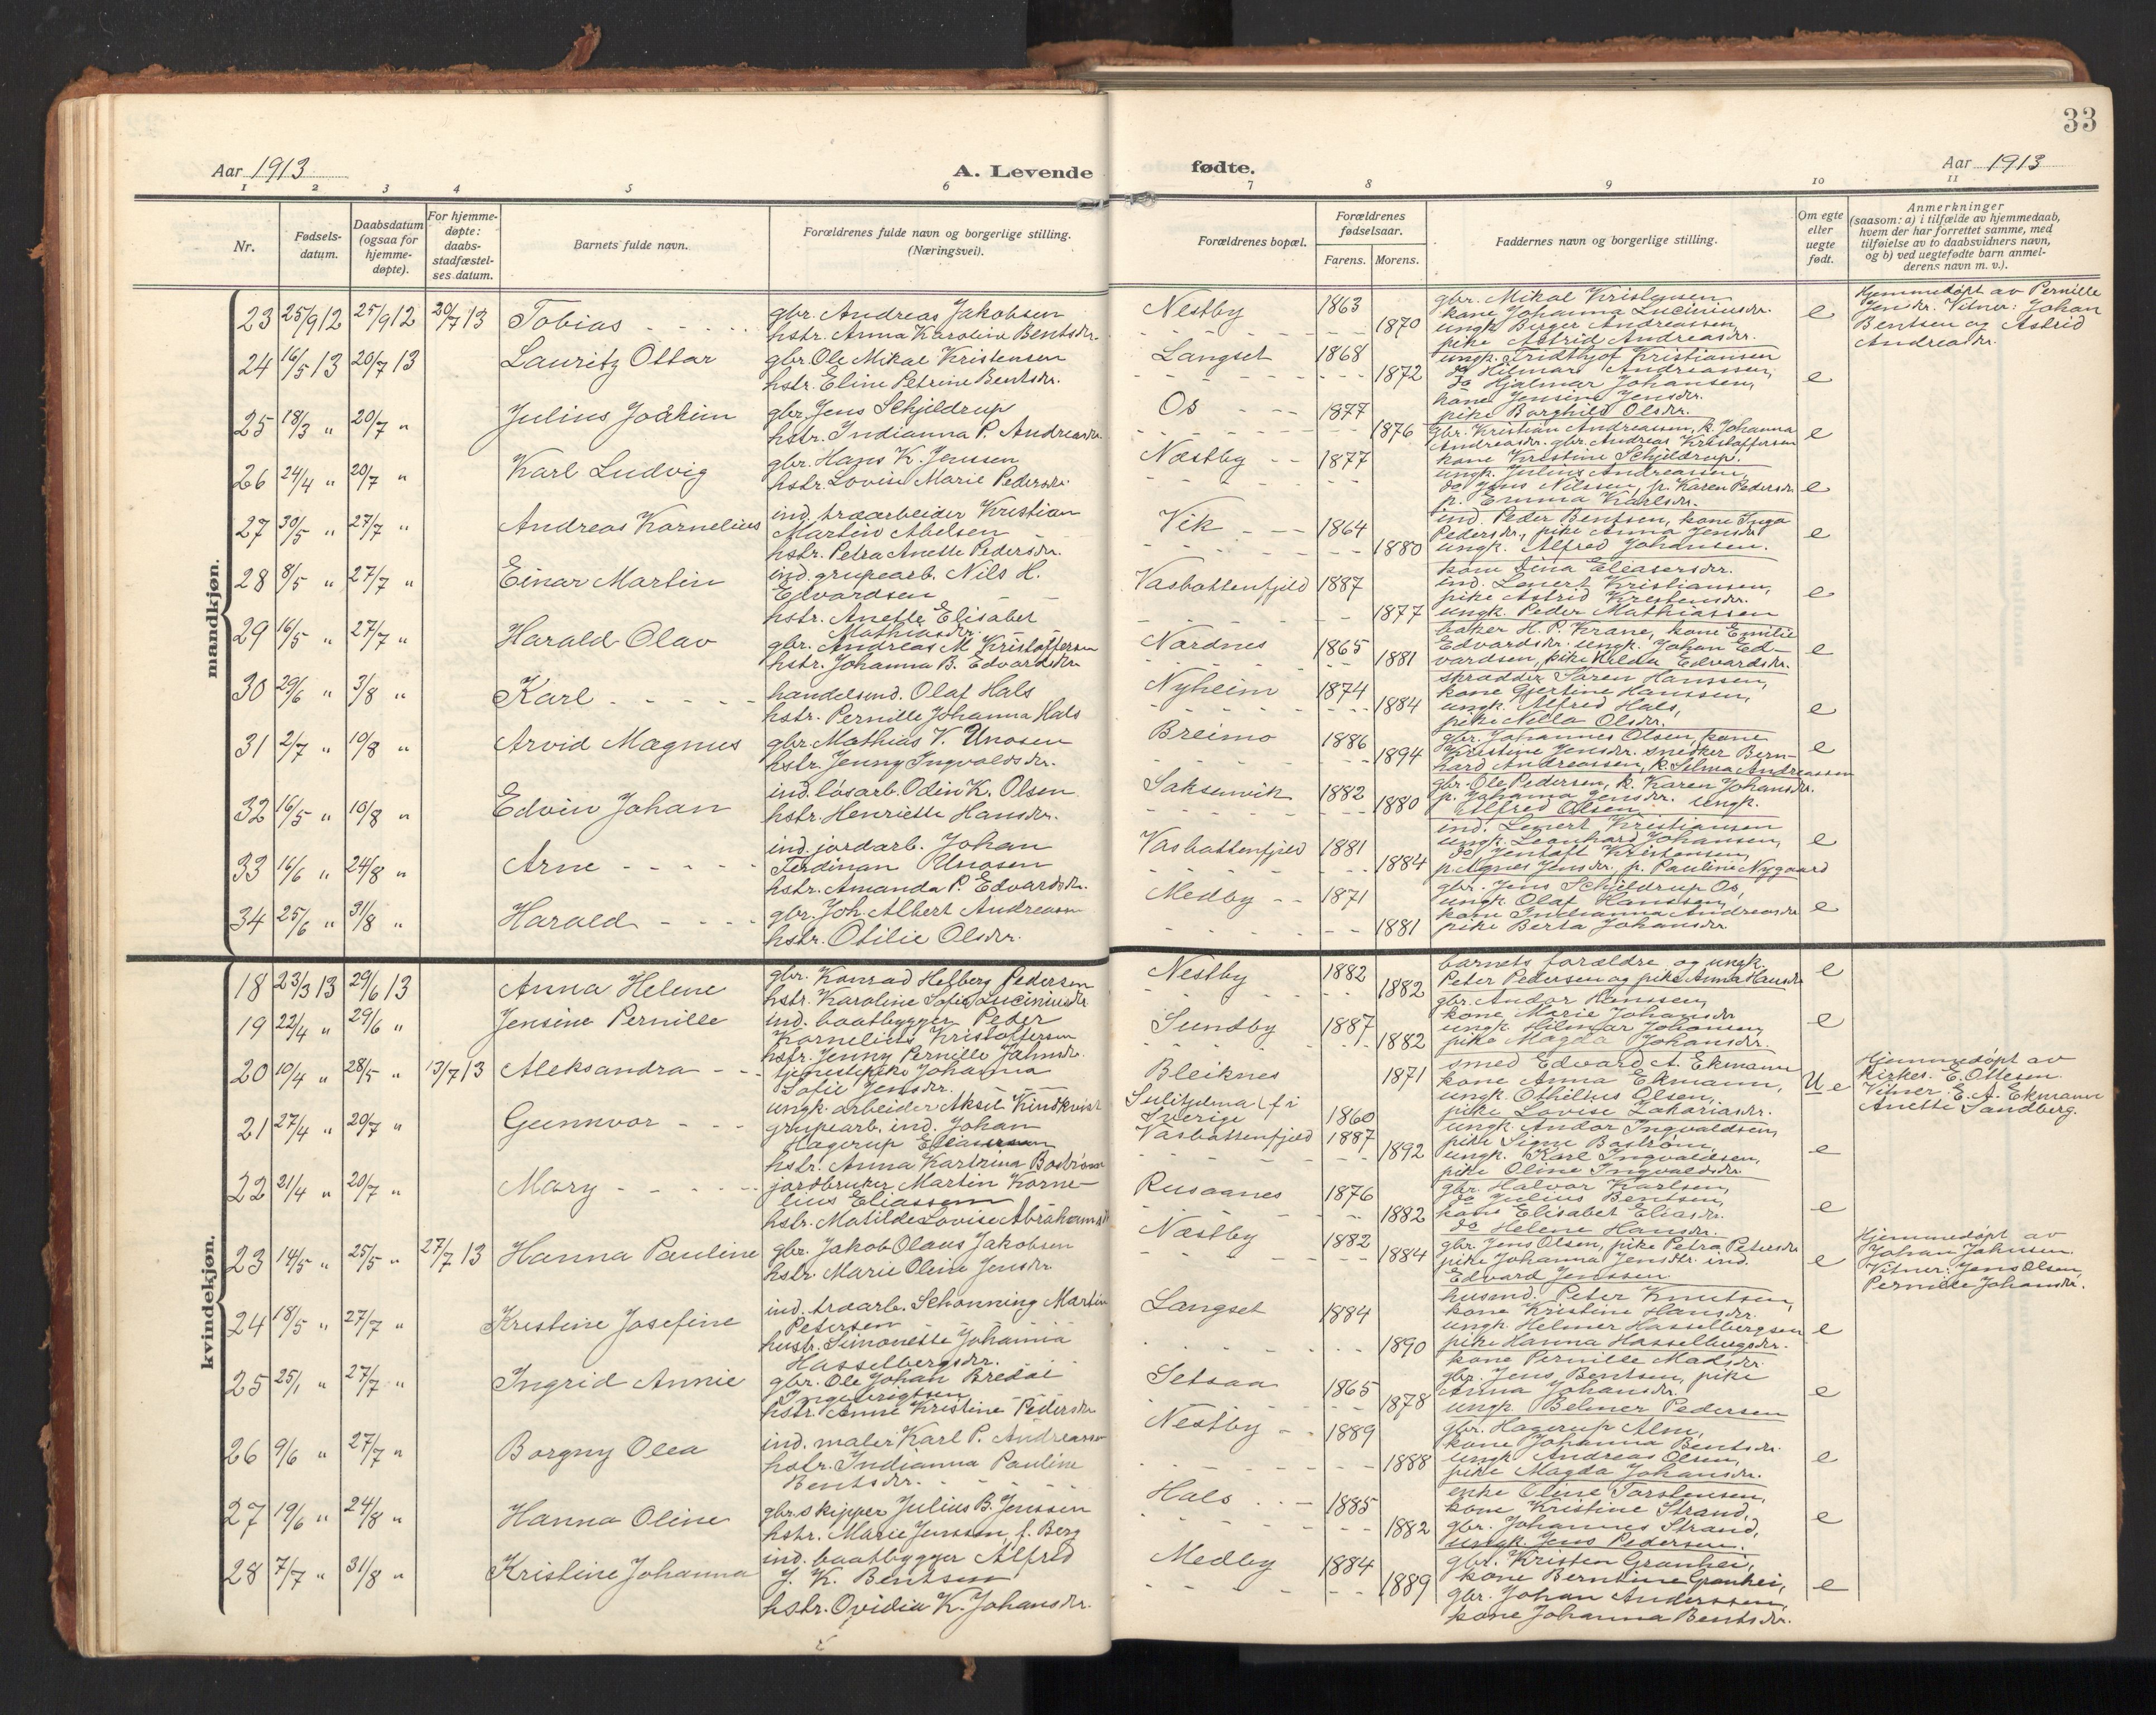 33
Aar 1913
A. Levende
fødte.
Aar 1913
1 2 3 4 5 6 7 8 9 10 11
Nr.
Fødsels-
datum.
Daabsdatum
(ogsaa for
hjemme-
døpte).
For hjemme-
døpte:
daabs-
stadfæstel-
ses datum.
Barnets fulde navn.
Forældrenes fulde navn og borgerlige stilling.
(Næringsvei).
Forældrenes bopæl.
Forældrenes
fødselsaar.
Farens. Morens.
Faddernes navn og borgerlige stilling.
Om egte
eller
uegte
født.
Anmerkninger
(saasom: a) i tilfælde av hjemmedaab,
hvem der har forrettet samme, med
tilføielse av to daabsvidners navn,
og b) ved uegtefødte barn anmel-
derens navn m. v.).
mandkjøn.
23 25/9 12 25/9 12 20/7 13 Tobias
gbr. Andreas Jakobsen
hstr. Anna Karoline Bentsdr.
Nestby 1863 1870
gbr. Mikal Kristensen
kone Johanna Luciniusdr.
ungk. Birger Andreassen
pike Astrid Andreasdr.
e
Hjemmedøpt av Pernille
Jensdr. Vitner: Johan
Bentsen og Astrid
Andreasdr.
24 16/5 13 20/7 13 Lauritz Ottar
gbr. Ole Mikal Kristensen
hstr. Eline Petrine Bentsdr.
Langset 1868 1872
ungk. Fridthjof Kristiansen
do Hilmar Andreassen,
do Hjalmar Johansen,
kone Jensine Jensdr.
pike Borghild Olsdr.
e
25 18/3 " 20/7 " Julius Joakim
gbr. Jens Schjeldrup
hstr. Indianna P. Andreasdr.
Os 1877 1876
gbr. Kristian Andreassen, k. Johanna
Andreasdr. gbr. Andreas Kristoffersen
kone Kristine Schjeldrup.
e
26 24/4 " 20/7 " Karl Ludvig
gbr. Hans K. Jenssen
hstr. Lovise Marie Pedersdr.
Næstby 1877
ungk. Julius Andreassen
do Jens Nilsen, p. Karen Pedersdr.
p. Emma Karlsdr.
e
27 30/5 " 27/7 " Andreas Kornelius
ind. traarbeider Kristian
Martin Abelsen
hstr. Petra Anette Pedersdr.
Vik 1864 1880
ind. Peder Bentsen, kone Inga
Pedersdr., pike Anna Jensdr.
ungk. Alfred Johansen.
e
28 8/5 " 27/7 " Einar Martin
ind. grupearb. Nils H.
Edvardsen
hstr. Anette Elisabet
Mathiasdr.
Vasbottenfjeld 1887 1877
kone Dina Eliasersdr.
ind. Lenert Kristiansen,
pike Astrid Kristensdr.
ungk. Peder Mathiassen
e
29 16/5 " 27/7 " Harald Olav
gbr. Andreas M Kristoffersen
hstr. Johanna B. Edvardsdr.
Nordnes 1865 1881
baker H. P. Krane, kone Emilie
Edvardsdr. ungk. Johan Ed-
vardsen, pike Hilda Edvardsdr.
e
30 29/6 " 3/8 " Karl
handelsmd. Olaf Hals
hstr. Pernille Johanna Hals
Nyheim 1874 1884
skrædder Søren Hanssen,
kone Gjertine Hanssen,
ungk. Alfred Hals,
pike Nilla Olsdr.
e
31 2/7 " 10/8 " Arvid Magnus
gbr. Mathias V. Unosen
hstr. Jenny Ingvaldsdr.
Breimo 1886 1894
gbr. Johannes Olsen, kone
Kristine Jensdr. snedker Bern-
hard Andreassen, k. Selma Andreassen
e
32 16/5 " 10/8 " Edvin Johan
ind. løsarb. Odin K. Olsen
hstr. Henriette Hansdr.
Saksenvik 1882 1880
gbr. Ole Pedersen, k. Karen Johansdr.
p. Johanna Jensdr. ungk.
Alfred Olsen.
33 16/6 " 24/8 " Arne
ind. jordarb. Johan
Ferdinan Unosen
hstr. Amanda P. Edvardsdr.
Vasbottenfjeld 1881 1884
ind. Lenert Kristiansen
ungk. Leonhard Johansen,
do Jentoft Kristensen,
p. Agnes Jensdr. p. Pauline Nygaard
e
34 25/6 " 31/8 " Harald
gbr. Joh. Albert Andreassen
hstr. Otilie Olsdr.
Medby 1871 1881
gbr. Jens Schjeldrup Os,
ungk. Olaf Hanssen,
kone Indianna Andreasdr.
pike Berta Johansdr.
e
kvindekjøn.
18 23/3 13 29/6 13 Anna Helene
gbr. Konrad Helberg Pedersen
hstr. Karoline Sofie Luciniusdr.
Nestby 1882 1882
barnets forældre og ungk.
Peter Pedersen og pike Anna Hansdr.
e
19 22/4 " 29/6 " Jensine Pernille
ind. baatbygger Peder
Kornelius Kristoffersen
hstr. Jenny Pernille Johnsdr.
Sundby 1887 1882
gbr. Andor Hanssen,
kone Marie Johansdr.
ungk. Hilmar Johansen,
pike Magda Johansdr.
e
20 10/4 " 28/5 " 13/7 13 Aleksandra
tjenestepike Johanna
Sofie Jensdr.
ungk. arbeider Aksel Kindkvist
Bleiknes 1871
Sulitjelma f. i
Sverige 1860
smed Edvard A. Ekmann
kone Anna Ekmann,
ungk. Othilius Olsen,
pike Lovise Zakariasdr.
U e
Hjemmedøpt av
kirkes. E. Ottesen.
Vitner: E. A. Ekmann
Anette Sandberg.
21 27/4 " 20/7 " Gunnvor
grupearb. ind. Johan
Hagerup Eliassen
hstr. Anna Kartrina Bostrøm
Vasbottenfjeld 1887 1892
ungk. Andor Ingvaldsen,
pike Signe Bostrøm,
ungk. Karl Ingvaldsen,
pike Oline Ingvaldsdr.
e
22 21/4 " 20/7 " Mary
jordbruker Martin Korne-
lius Eliassen
hstr. Matilde Lovise Abrahamsdr.
Rusaanes 1876 1882
gbr. Halvor Karlsen,
do Julius Bentsen,
kone Elisabet Eliasdr.
do Helene Hansdr.
e
23 14/5 " 25/5 " 27/7 13 Hanna Pauline
gbr. Jakob Olaus Jakobsen
hstr. Marie Oline Jensdr.
Næstby 1882 1884
gbr. Jens Olsen, pike Petra Petersdr.
pike Johanna Jensdtr. ind.
Edvard Jenssen
e
Hjemmedøpt av
Johan Johnsen.
Vitner: Jens Olsen,
Pernille Johansdr.
24 18/5 " 27/7 " Kristine Josefine
ind. traarb. Schønning Martin
Petersen
hustr. Simonette Johanna
Hasselbergsdr.
Langset 1884 1890
husmd. Peter Knutsen,
kone Kristine Hansdr.
ungk. Helmer Hasselbergsen
pike Hanna Hasselbergsdr.
e
25 25/1 " 27/7 " Ingrid Annie
gbr. Ole Johan Bredal
Ingebrigtsen
hstr. Anne Kristine Pedersdr.
Setsaa 1865 1878
kone Pernille Madsdr.
gbr. Jens Bentsen, pike
Anna Johansdr.
ungk. Belmer Pedersen
e
26 9/6 " 27/7 " Borgny Olea
ind. maler Karl P. Andreassen
hstr. Indianna Pauline
Bentsdr.
Nestby 1889 1888
gbr. Hagerup Alm,
kone Johanna Bentsdr.
ungk. Andreas Olsen,
pike Magda Johansdr.
e
27 19/6 " 24/8 " Hanna Oline
gbr. skipper Julius B. Jenssen
hstr. Marie Jenssen f. Berg
Hals 1885 1882
enke Oline Torstensen,
kone Kristine Strand,
gbr. Johannes Strand,
ungk. Jens Pedersen.
e
28 7/7 " 31/8 " Kristine Johanna
ind. baatbygger Alfred
J. K. Bentsen
hstr. Ovidia K. Johansdr.
Medby 1884 1889
gbr. Kristen Granhei,
kone Berntine Granhei,
gbr. Johan Anderssen,
kone Johanna Bentsdr.
e